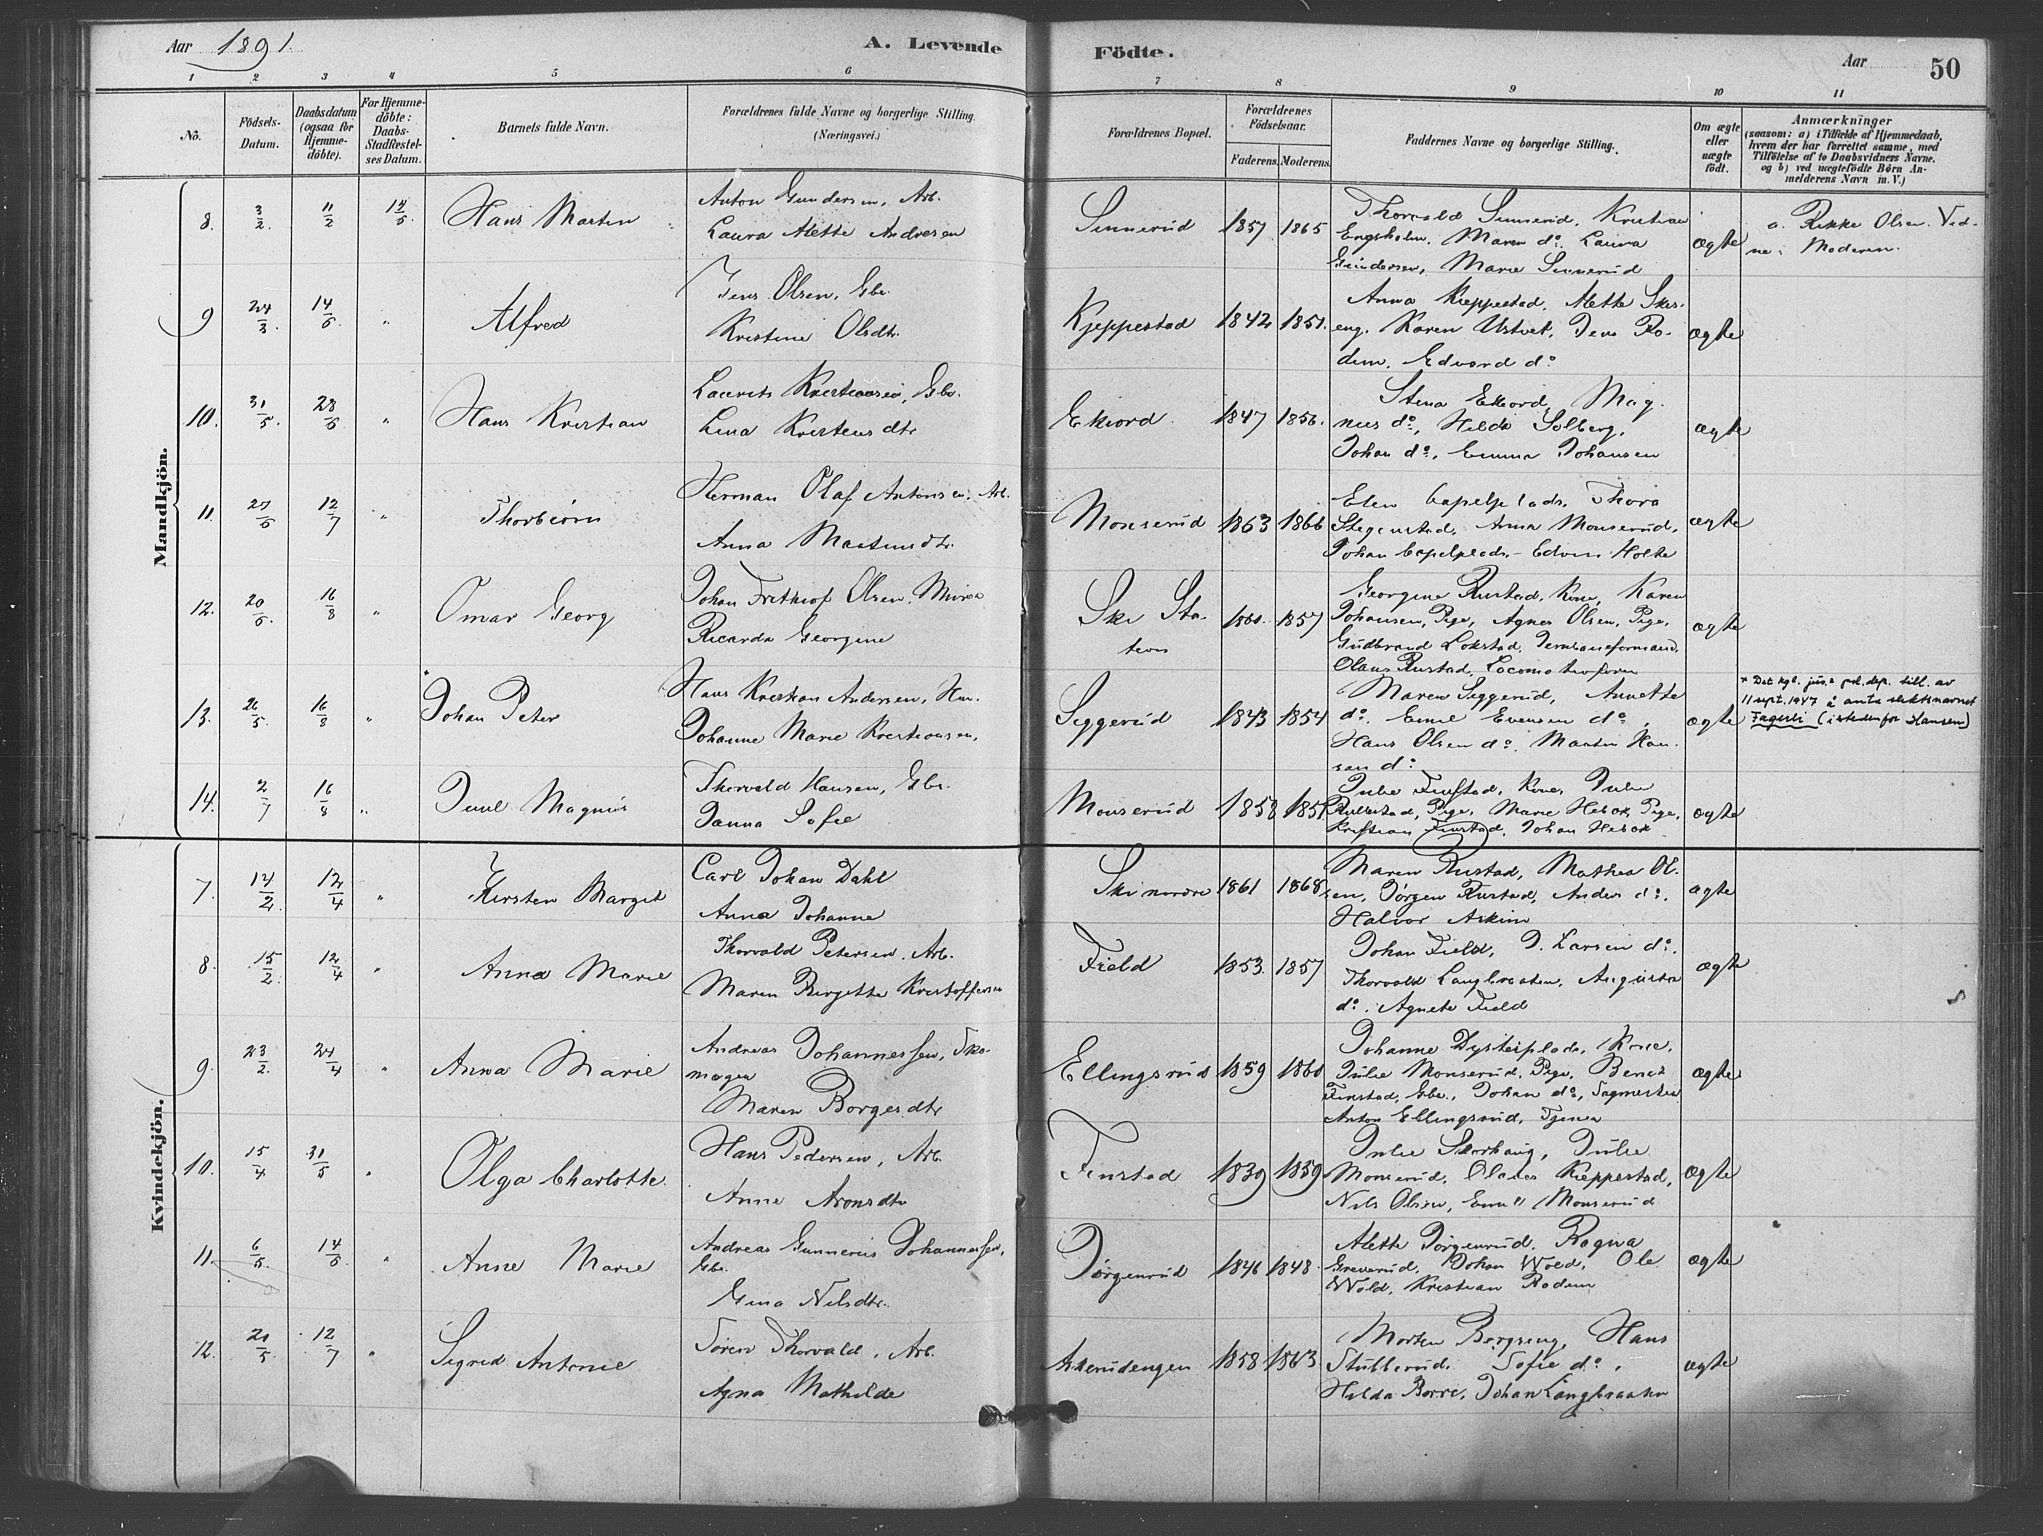 Aar 1891.
A. Levende Födte.
Aar
50
1 2 3 4 5 6 7 8 9 10 11
No.
Födsels-Datum.
Daabsdatum (ogsaa for Hjemme-döbte).
For Hjemme-döbte: Daabs-Stadfæstel-ses Datum.
Barnets fulde Navn.
Forældrenes fulde Navne og borgerlige Stilling. (Næringsvei.)
Forældrenes Bopæl.
Forældrenes Födselsaar.
Faderens. Moderens.
Faddernes Navne og borgerlige Stilling.
Om ægte eller uægte födt.
Anmærkninger
(saasom: a) i Tilfælde af Hjemmedaab, hvem der har forrettet samme, med Tilföielse af to Daabsvidners Navne. og b) ved uægtefödte Börn An-melderens Navn m. V.)
Mandkjön.
8. 3/2. 11/2 14/5 Hans Martin
Anton Gundersen, Arb.
Laura Alette Andresen
Sinnerud 1857 1865
Thorvald Sinnerud, Kristian
Engsholm, Maren do. Laura
Gundersen, Marie Sinnerud
ægte
a. Rikke Olsen. Vid-
ne: Moderen.
9 24/3. 14/6. " Alfred
Jens Olsen, Gbr.
Kristine Olsdtr.
Kjeppestad 1842 1851.
Anna Kjeppestad, Alette
eng. Karen Ustvet, Jens Ro-
dem, Edvard do
ægte
10. 31/5. 28/6 " Hans Kristian
Laurits Kristiansen, Gbr.
Lina Kristensdtr
Ekeord 1847 1856.
Stina Ekeord, Mag-
nus do, Hilda Solberg,
Johan do, Emma Johansen
ægte
11. 27/5 12/7 " Thorbiörn
Herman Olaf Antonsen, Arb.
Anna Martinsdtr.
Monserud 1863 1866
Elen Capelplads, Thora
Stegenstad, Anna Monserud,
Johan Capelplads, Edvin Holte
ægte
12. 20/6. 16/8 " Omar Georg
Johan Frithiof Olsen,
Ricarda Georgine
Ski Sta-
tion
1860. 1857
Georgine Rustad, Kone, Karen
Johansen, Pige, Agnes Olsen, Pige,
Gudbrand Lökstad, Jernbaneformand,
Olaus Rustad, Locomotivförer
ægte
13. 26/5. 16/8 " * Johan Peter
Hans Kristian Andersen, Hm.
Johanne Marie Kristiansen,
Siggerud 1843 1854
Maren Siggerud, Annette
do. Emil Evensen do,
Hans Olsen do. Martin Han-
sen do
ægte
* Det kgl. jus.- pol.dep. till. av
11 sept. 1947 å anta slektsnavnet
Fagerli (istedenfor Hansen)
14. 2/7 16/8 " Juul Magnus
Thorvald Hansen, Gbr.
Janna Sofie
Monserud 1858 1851
Julie Finstad, Kone, Julie
Rullestad, Pige, Marie Hebæk, Pige,
Kristian Finstad, Johan Hebæk
ægte
Kvindekjön.
7. 14/2. 12/4 " Kirsten Margit
Carl Johan Dahl
Anna Johanne
Ski nordre 1861 1868
Maren Rustad, Mathea Ol-
sen, Jörgen Rustad, Anders do.
Halvor Askim
ægte
8. 15/2. 12/4 " Anna Marie
Thorvald Petersen, Arb.
Maren Birgitte Kristoffersen
Field 1853. 1857
Johan Field, J. Larsen do.
Thorvald Langbraaten, Augusta
do. Agnete Field
ægte
9. 23/2. 24/4 " Anna Marie
Andreas Johannessen, Sko-
mager
Maren Borgersdtr
Ellingsrud 1859 1860
Johanne Dysterplads, Kone,
Julie Monserud, Pige, Bernt
Finstad, Gbr., Johan do,
Anton Ellingsrud, Tjener
ægte
10. 15/4 31/5 " Olga Charlotte
Hans Pedersen, Arb.
Anne Aronsdtr
Finstad 1839 1859
Julie Skorhaug, Julie
Monserud, Olaus Kieppestad,
Nils Olsen, Emil Monserud
ægte
11. 6/5. 14/6 " Anne Marie
Andreas Gunnerius Johannessen,
Gbr.
Gina Nilsdtr.
Jörgenrud 1846 1848.
Alette Jörgenrud, Ragna
Greverud, Johan Wold, Ole
Wold, Kristian Rodem
ægte
12. 20/5. 12/7 " Sigrid Antonie
Sören Thorvald, Arb.
Agna Mathilde
Askerudengen 1858 1863.
Morten Bergseng, Hans
Stubberud, Sofie do.
Hilda Borre, Johan Langbraaten
ægte